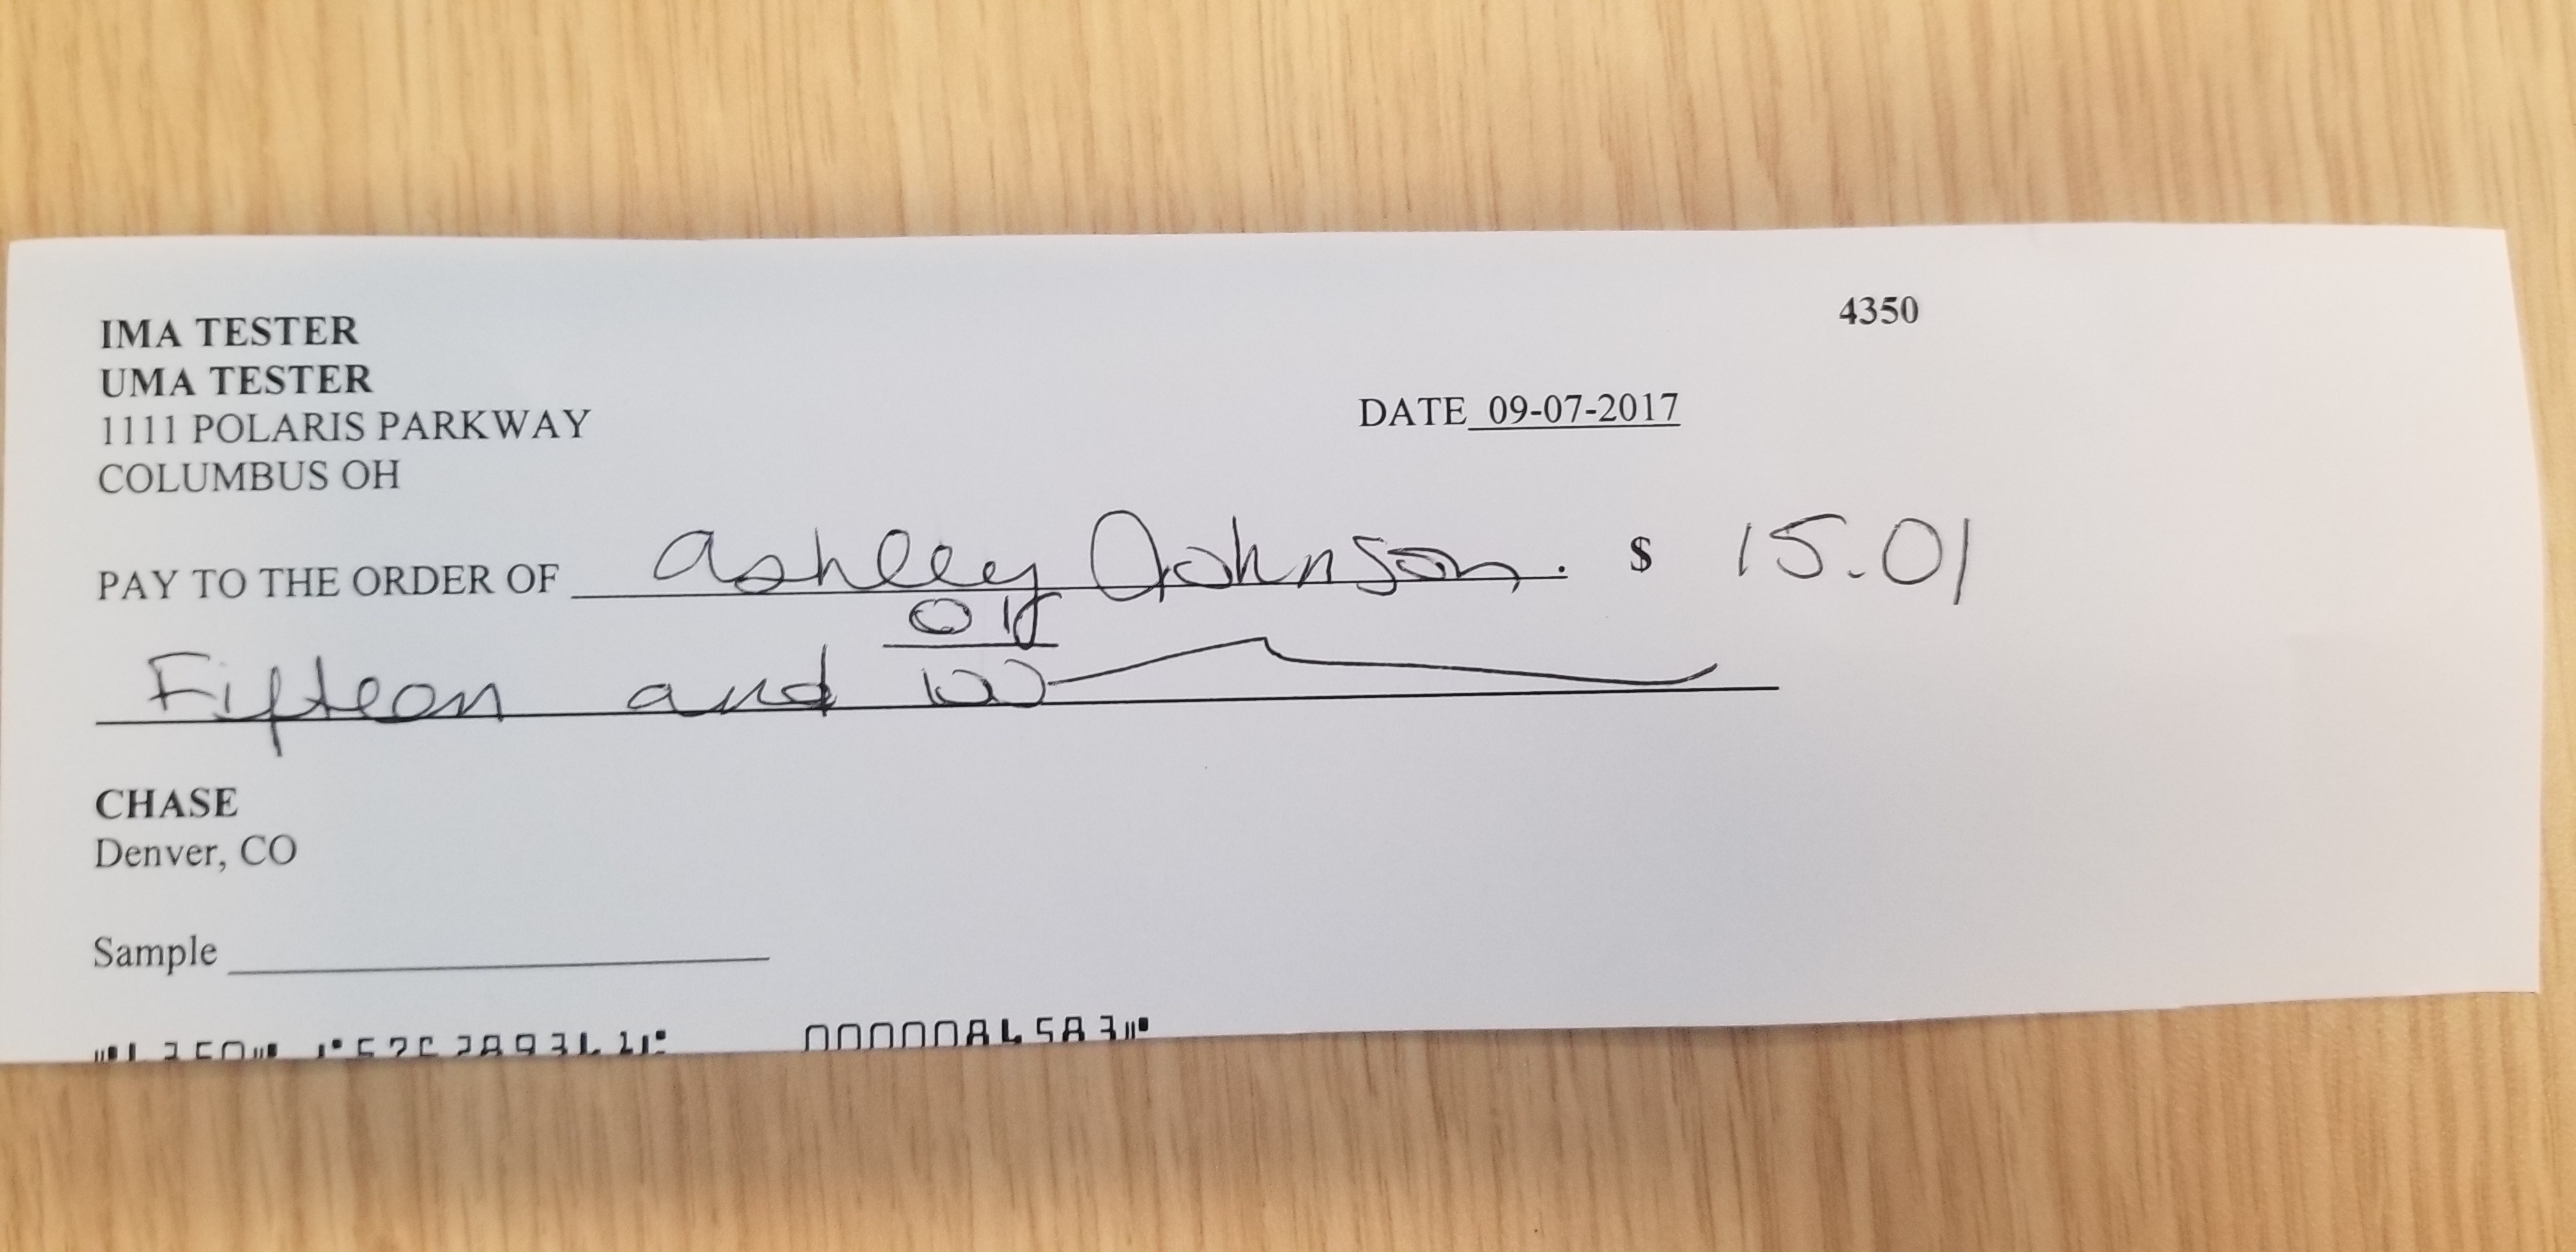 4350
IMA TESTER
UMA TESTER
1111 POLARIS PARKWAY
COLUMBUS OH
DATE 09-07-2017
PAY TO THE ORDER OF Ashley Johnson. $ 15.01
Fifteen and 01/100
CHASE
Denver, CO
Sample